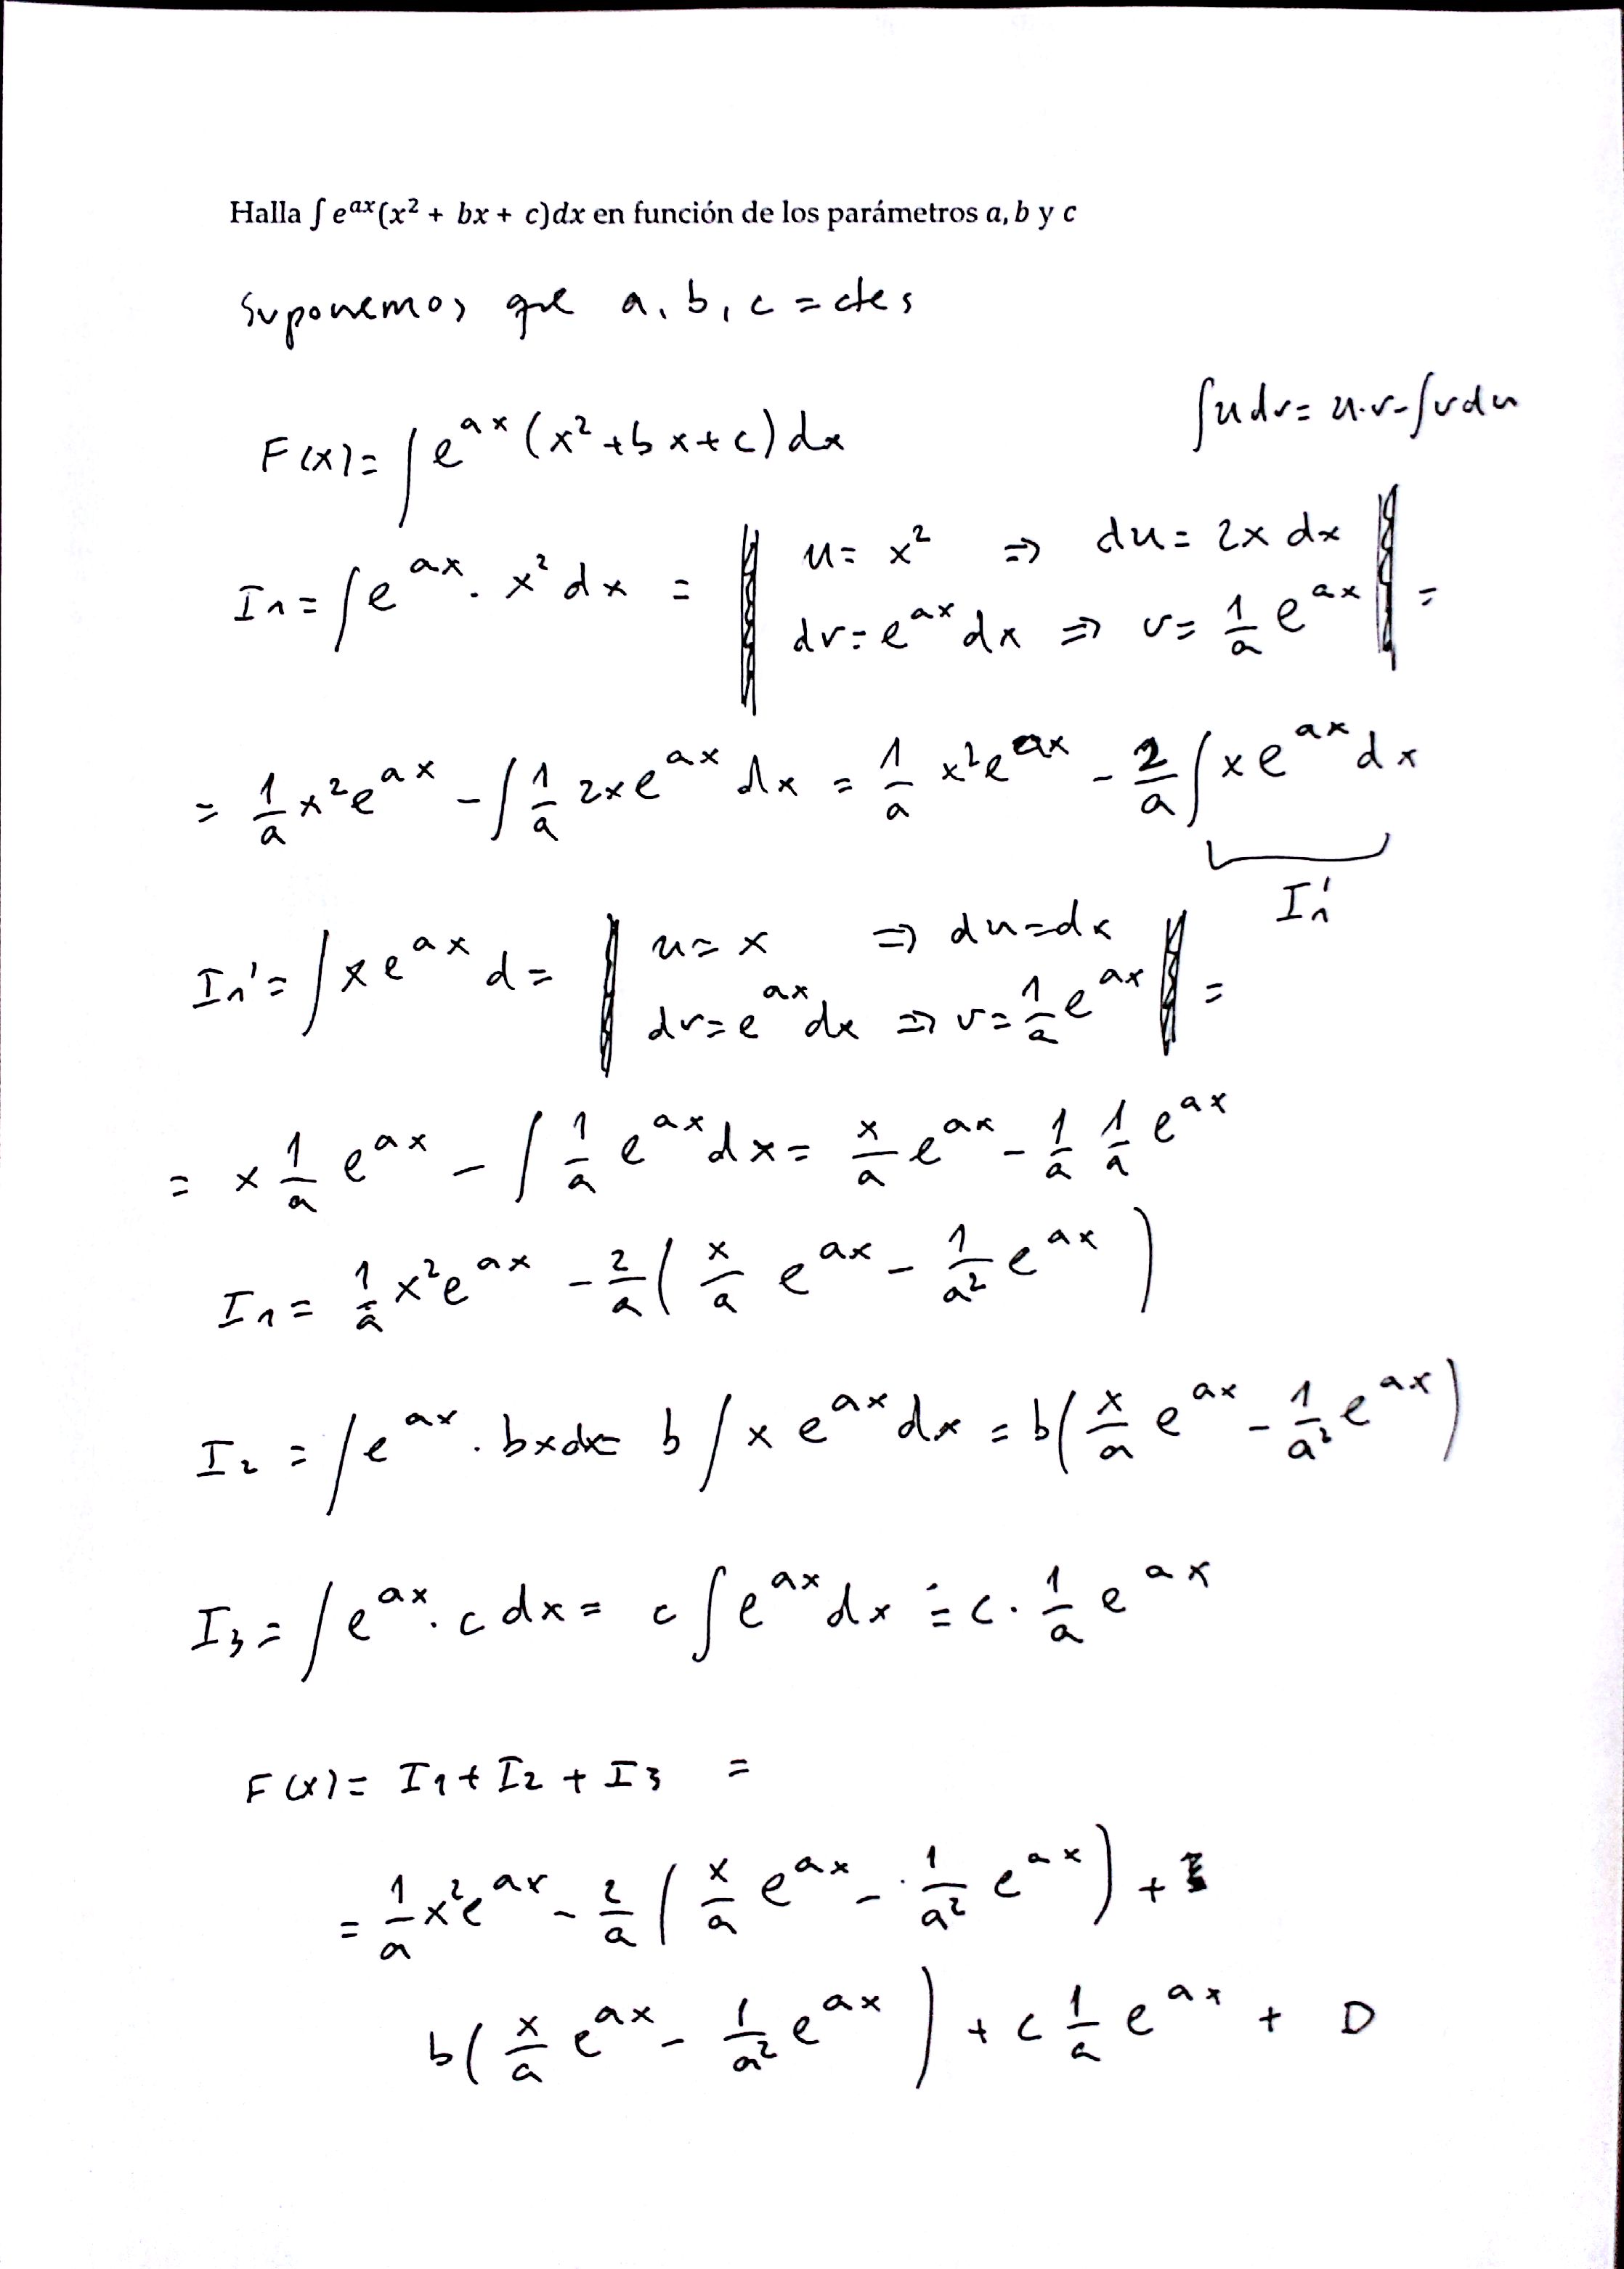 Halla ∫ e^{ax}(x² + bx + c)dx en función de los parámetros a, b y c
Suponemos que a, b, c = ctes
∫u dv = u·v - ∫v du
F(x) = ∫ e^{ax} (x² + bx + c) dx
I₁ = ∫ e^{ax} · x² dx = || u = x² ⇒ du = 2x dx
dv = e^{ax} dx ⇒ v = 1/a e^{ax} || =
= 1/a x² e^{ax} - ∫ 1/a 2x e^{ax} dx = 1/a x² e^{ax} - 2/a ∫ x e^{ax} dx
I₁'
I₁' = ∫ x e^{ax} d = || u = x ⇒ du = dx
dv = e^{ax} dx ⇒ v = 1/a e^{ax} || =
= x 1/a e^{ax} - ∫ 1/a e^{ax} dx = x/a e^{ax} - 1/a 1/a e^{ax}
I₁ = 1/a x² e^{ax} - 2/a ( x/a e^{ax} - 1/a² e^{ax} )
I₂ = ∫ e^{ax} · bx dx = b ∫ x e^{ax} dx = b( x/a e^{ax} - 1/a² e^{ax} )
I₃ = ∫ e^{ax} · c dx = c ∫ e^{ax} dx = c · 1/a e^{ax}
F(x) = I₁ + I₂ + I₃ =
= 1/a x² e^{ax} - 2/a ( x/a e^{ax} - 1/a² e^{ax} ) +
b( x/a e^{ax} - 1/a² e^{ax} ) + c 1/a e^{ax} + D